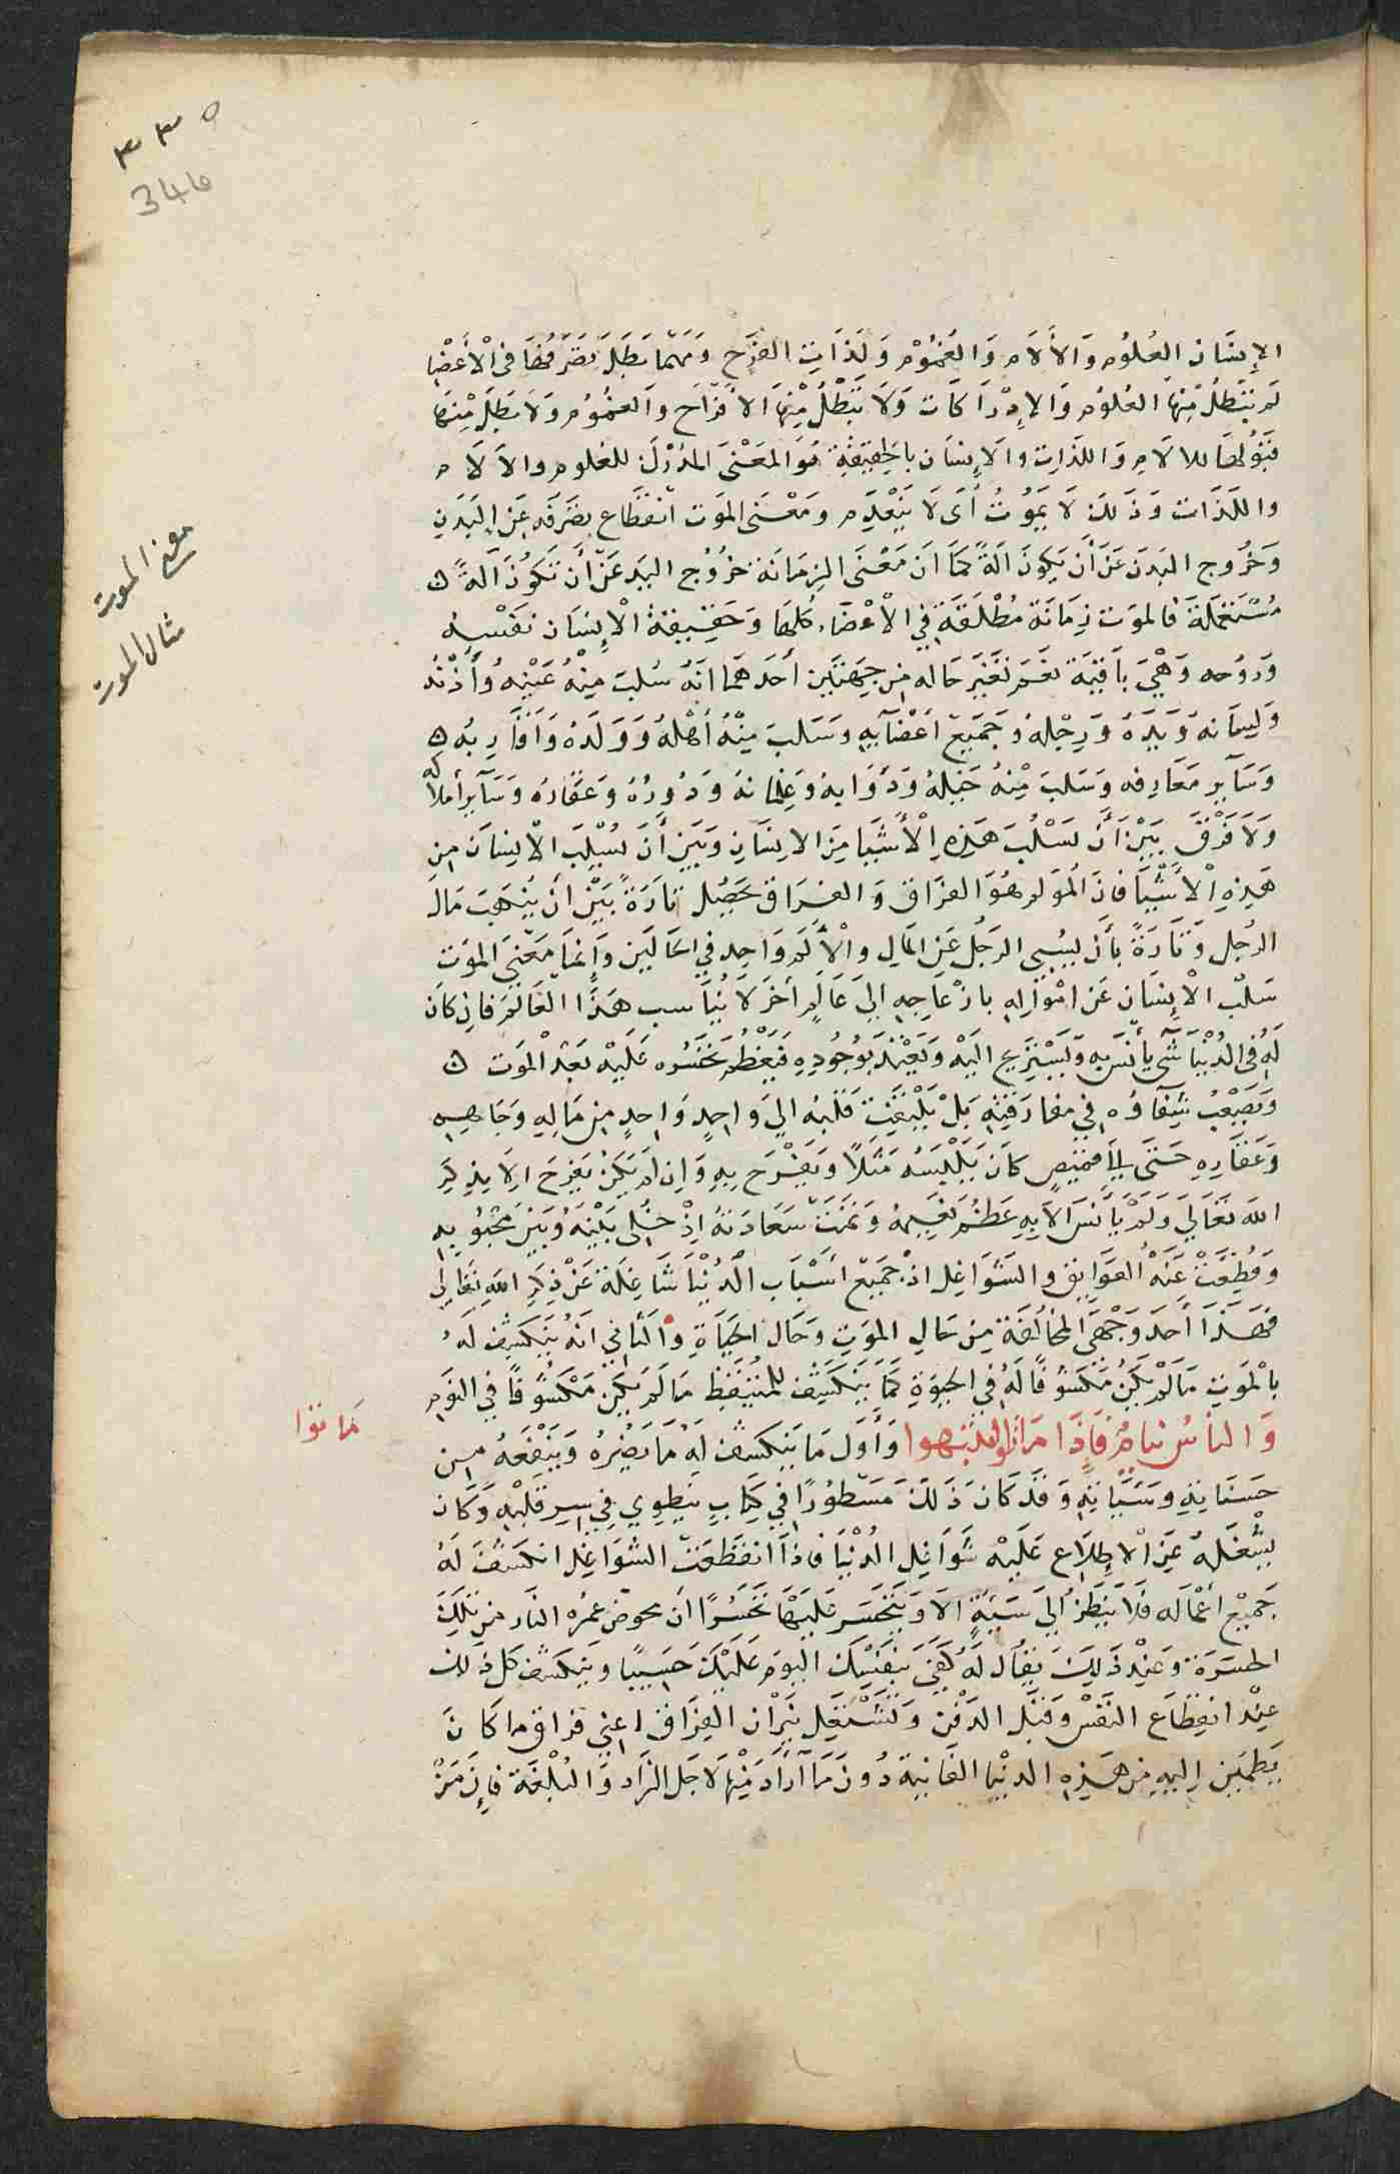 ٣٣٥
346
معنى الموت
مثال الموت
الإنسان العلوم والألام والغموم ولذات الفرح ومهما بطل تصرفها في الأعضا
لم تبطل منها العلوم والإدراكات ولا تبطل منها الأفراح والغموم ولا بطل منها
قبولها للالام واللذات والإنسان بالحقيقة هو المعنى المدرك للعلوم والالام
واللذات وذلك لا يموت أى لا ينعدم ومعنى الموت انقطاع تصرفه عن البدن
وخروج البدن عن أن يكون آلة كما ان معنى الزمانة خروج اليد عن أن تكون آلة
مستعملة فالموت زمانة مطلقة في الأعضاء كلها وحقيقة الإنسان نفسه
وروحه وهي باقية نعم تغير حاله من جهتين أحدهما انه سلب منه عينه وأذنه
ولسانه ويده ورجله وجميع أعضآيه وسلب منه أهله وولده وأقاربه
وسآير معارفه وسلب منه خيله ودوابه وغلمانه ودوره وعقاره وسآير أملاكه
ولا فرق بين أن تسلب هذه الأشيا من الانسان وبين أن يسلب الانسان من
هذه الأشيا فان المولم هو الفراق والفراق يحصل تارة بين ان ينهب مال
الرجل وتارة بأن يسبى الرجل عن المال والألم واحد في الحالين وإنما معنى الموت
سلب الإنسان عن امواله بازعاجه الى عالم أخر لا يناسب هذا العالم فان كان
له في الدنيا شى يأنس به ويستريح اليه ويعتد بوجوده فيعظم تحسره عليه بعد الموت
ويصعب شقاؤه في مفارقته بل يلتفت قلبه الى واحد واحد من ماله وجاهه
وعقاره حتى الى قميص كان يلبسه مثلا ويفرح به وان لم يكن يفرح الا بذكر
الله تعالى ولم يأنس الا به عظم نعيمه وتمت سعادته اذ خلى بينه وبين محبوبه
وقطعت عنه العوايق والشواغل اذ جميع أسباب الدنيا شاغلة عن ذكر الله تعالى
فهذا أحد وجهى المخالفة من حال الموت وحال الحياة والثاني انه ينكشف له
بالموت ما لم يكن مكشوفا له في الحيوة كما ينكشف للمتيقظ ما لم يكن مكشوفا في النوم
والناس نيام فاذا ماتوا انتبهوا وأول ما ينكشف له ما يضره وينفعه من
ماتوا
حسناته وسيئاته وقد كان ذلك مسطورا في كتاب ينطوي في سر قلبه وكان
يشغله عن الاطلاع عليه شواغل الدنيا فاذا انقطعت الشواغل انكشف له
جميع أعماله فلا ينظر الى سيئة الا ويتحسر عليها تحسرا ان يخوض غمرة النار من تلك
الحسرة وعند ذلك يقال له كفى بنفسك اليوم عليك حسيبا وينكشف كل ذلك
عند انقطاع النفس وقبل الدفن وتشتعل نيران الفراق اعني فراق ما كان
يطمئن اليه من هذه الدنيا الفانية دون ما أراد منها لاجل الزاد والبلغة فإن من